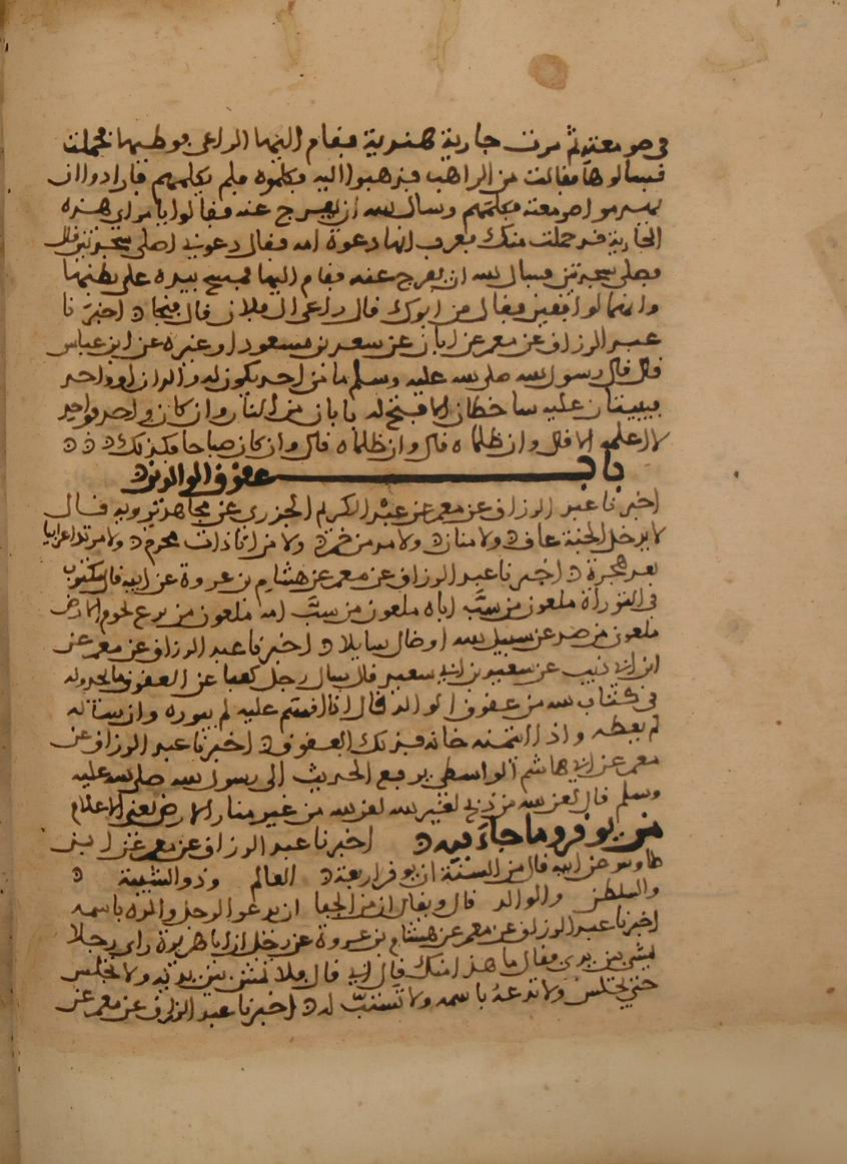 في صومعته ثم مرت جارية هندية فقام اليها الراعى فوطيها فحملت
فسالوها فقالت من الراهب فذهبوا اليه فكلموه فلم يكلمهم فارادوا ان
يهدموا صومعته فكلمهم وسال الله ان يفرج عنه فقالوا يا مراى هذه
الجارية قد حملت منك فعرف انها دعوة امه فقال دعوني اصلى سجدتين قال
فصلى سجدتين فسال الله ان يفرج عنه فقام اليها فمسح بيده على بطنها
وانهما لواقفين فقال من ابوك قال راعى ال فلان قال فنجا اخبرنا
عبد الرزاق عن معمر عن ابان عن سعد بن مسعود او غيره عن ابن عباس
قال قال رسول الله صلى الله عليه وسلم ما من احد يكون له والدان او واحد
فيبيتان عليه ساخطان الا فتح له بابان من النار وان كان واحد فواحد
قال وان ظلماه قال وان ظلماه قال وان كان صباحا فكذلك
باب عقوق الوالدين
اخبرنا عبد الرزاق عن معمر عن عبد الكريم الجزري عن مجاهد يرويه قال
لا يدخل الجنة عاق ولا منان ولا مدمن خمر ولا من اتا ذات محرم ولا مرتد اعرابيا
بعد هجرة اخبرنا عبد الرزاق عن معمر عن هشام بن عروة عن ابيه قال مكتوب
في التوراة ملعون من سب اباه ملعون من سب امه ملعون من غير تخوم الارض
ملعون من صد عن سبيل الله او ضال سايلا اخبرنا عبد الرزاق عن معمر عن
ابن ابي ذيب عن سعيد بن ابي سعيد قال سال رجل كعبا عن العقوق ما تجدونه
في كتاب الله من عقوق الوالد قال اذا اقسم عليه لم يبره وان ساله
لم يعطه واذا ائتمنه خانه فذلك العقوق اخبرنا عبد الرزاق عن
معمر عن ابي هاشم الواسطى يرفع الحديث الى رسول الله صلى الله عليه
وسلم قال لعن الله من ذبح لغير الله لعن الله من غير منار الارض يعني الاعلام
من يوقر وما جاء فيه اخبرنا عبد الرزاق عن معمر عن ابن
طاوس عن ابيه قال من السنة ان يوقر اربعة العالم وذو الشيبة
والسلطن والوالد قال ويقال ان من الجفا ان يدعو الرجل والده باسمه
اخبرنا عبد الرزاق عن معمر عن هشام بن عروة عن رجل ان ابا هريرة راى رجلا
يمشي بين يدي فقال ما هذا منك قال ابي قال فلا تمش بين يديه ولا تجلس
حتي يجلس ولا تدعه باسمه ولا تستب له اخبرنا عبد الرزاق عن معمر عن